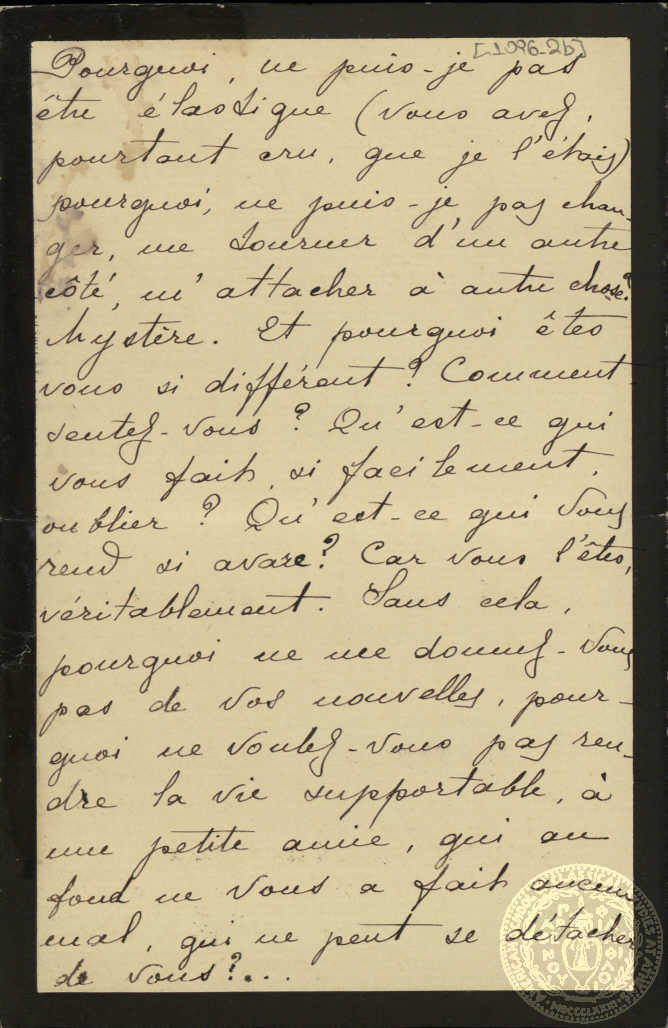 [1096-2b]
Pourquoi, ne puis-je pas
être élastique (vous avez,
pourtant cru, que je l'étais)
pourquoi, ne puis-je pas chan-
ger, me tourner d'un autre
côté, m'attacher à autre chose?
Mystère. Et pourquoi êtes
vous si différent? Comment
sentez-vous? Qu'est-ce qui
vous fait, si facilement,
oublier? Qu'est-ce qui vous
rend si avare? Car vous l'êtes,
véritablement. Sans cela,
pourquoi ne me donnez-vous
pas de vos nouvelles, pour-
quoi ne voulez-vous pas ren-
dre la vie supportable, à
une petite amie, qui au
fond ne vous a fait aucun
mal, qui ne peut se détacher
de vous?...